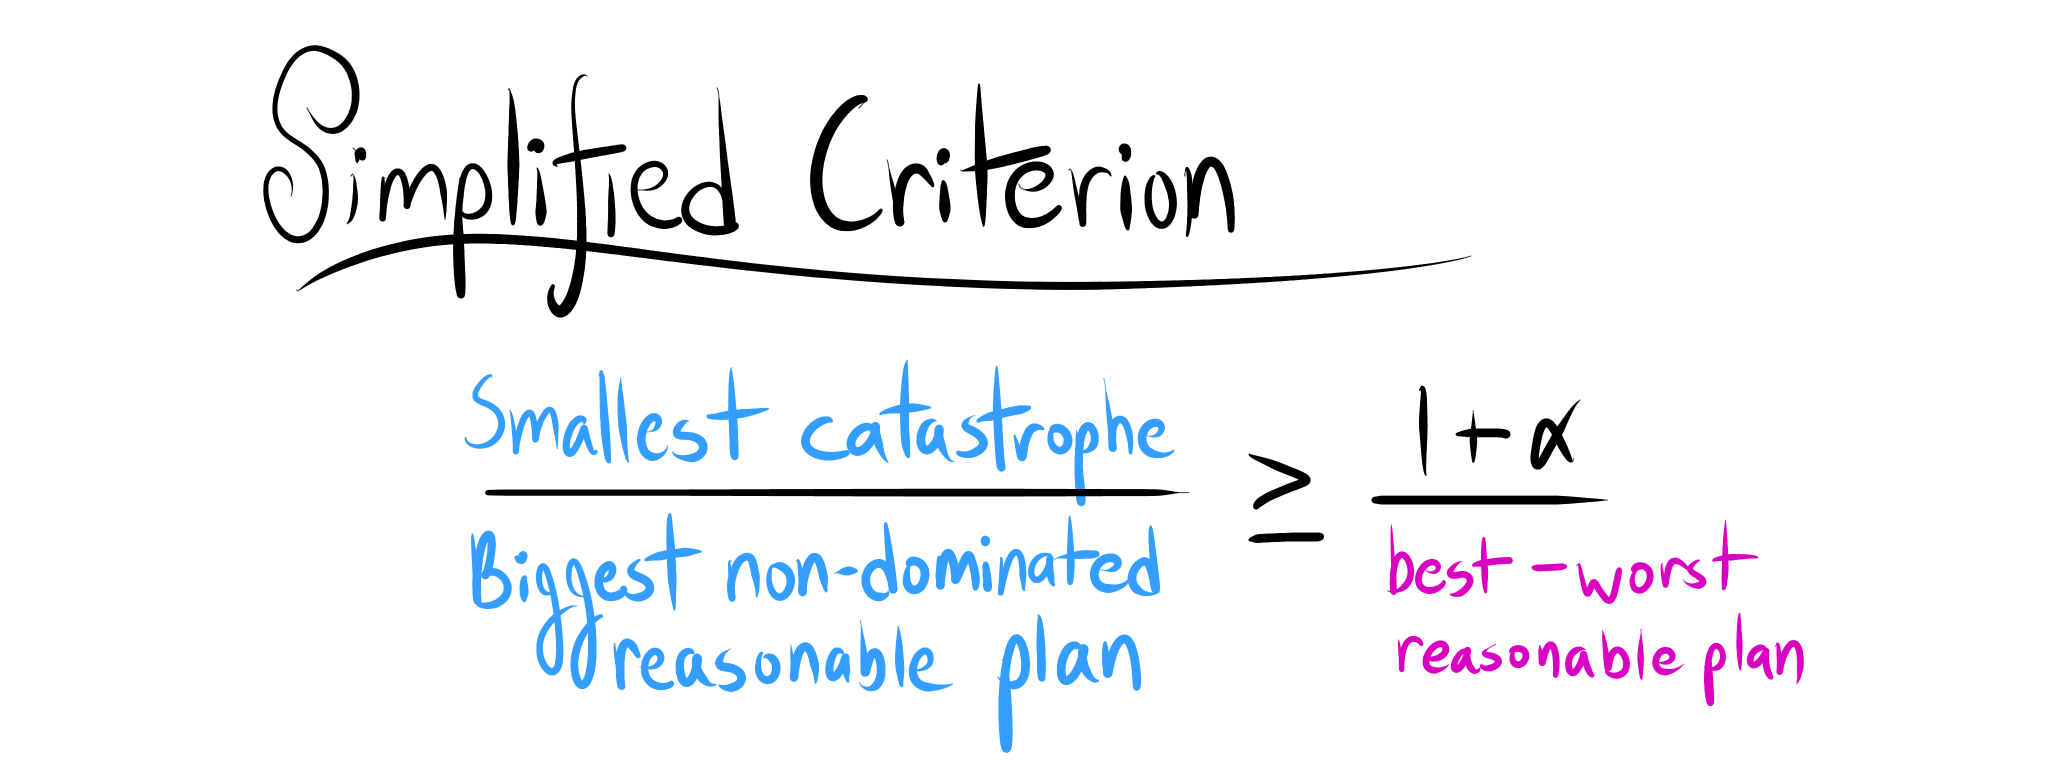 Simplified Criterion
Smallest catastrophe
Biggest non-dominated
reasonable plan
≥
1+α
best-worst
reasonable plan